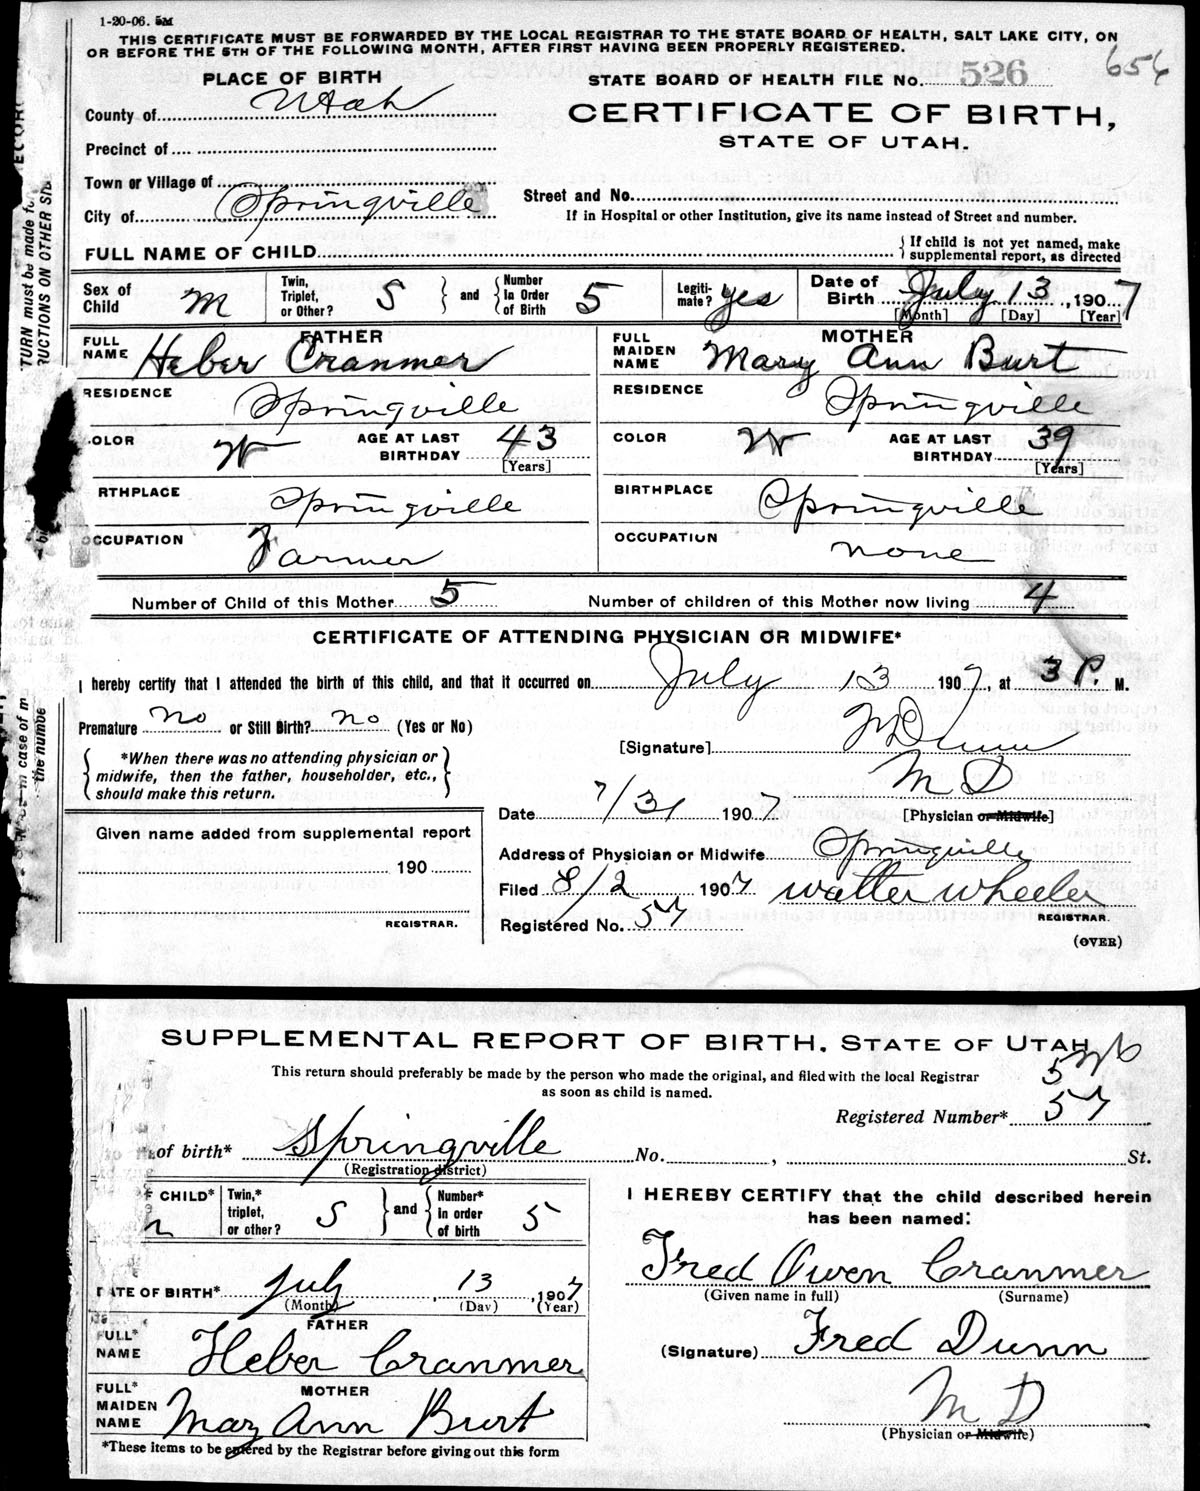 1-20-06. 5M
THIS CERTIFICATE MUST BE FORWARDED BY THE LOCAL REGISTRAR TO THE STATE BOARD OF HEALTH, SALT LAKE CITY, ON
OR BEFORE THE 5TH OF THE FOLLOWING MONTH, AFTER FIRST HAVING BEEN PROPERLY REGISTERED.
656
PLACE OF BIRTH
STATE BOARD OF HEALTH FILE No. 526
County of Utah
CERTIFICATE OF BIRTH,
STATE OF UTAH.
Precinct of
Town or Village of
City of Springville
Street and No.
If in Hospital or other Institution, give its name instead of Street and number.
FULL NAME OF CHILD
{ If child is not yet named, make
supplemental report, as directed
Sex of Child M
Twin, Triplet, or Other? S } and { Number In Order of Birth 5
Legiti-mate? yes
Date of Birth July 13, 1907
[Month] [Day] [Year]
FATHER
FULL NAME Heber Cranmer
MOTHER
FULL MAIDEN NAME Mary Ann Burt
RESIDENCE Springville
RESIDENCE Springville
OLOR W AGE AT LAST BIRTHDAY 43 [Years]
COLOR W AGE AT LAST BIRTHDAY 39 [Years]
RTHPLACE Springville
BIRTHPLACE Springville
OCCUPATION Farmer
OCCUPATION none
Number of Child of this Mother 5 Number of children of this Mother now living 4
CERTIFICATE OF ATTENDING PHYSICIAN OR MIDWIFE*
I hereby certify that I attended the birth of this child, and that it occurred on July 13 1907, at 3 P. M.
Premature no or Still Birth? no (Yes or No)
{ *When there was no attending physician or
midwife, then the father, householder, etc.,
should make this return. }
[Signature] Dunn
M D
[Physician or Midwife]
Date 7/31 1907
Given name added from supplemental report
190
REGISTRAR.
Address of Physician or Midwife Springville
Filed 8/2 1907 Walter Wheeler
REGISTRAR.
Registered No. 57
(OVER)
TURN must be made for
RUCTIONS ON OTHER SIDE
in case of m
the numbe
SUPPLEMENTAL REPORT OF BIRTH, STATE OF UTAH
This return should preferably be made by the person who made the original, and filed with the local Registrar
as soon as child is named.
Registered Number* 57
of birth* Springville No. , St.
(Registration district)
CHILD* Twin,* triplet, or other? S } and { Number* In order of birth 5
DATE OF BIRTH* July 13, 1907
(Month) (Day) (Year)
FATHER
FULL* NAME Heber Cranmer
MOTHER
FULL* MAIDEN NAME Mary Ann Burt
*These items to be entered by the Registrar before giving out this form
I HEREBY CERTIFY that the child described herein
has been named:
Fred Owen Cranmer
(Given name in full) (Surname)
(Signature) Fred Dunn
M D
(Physician or Midwife)